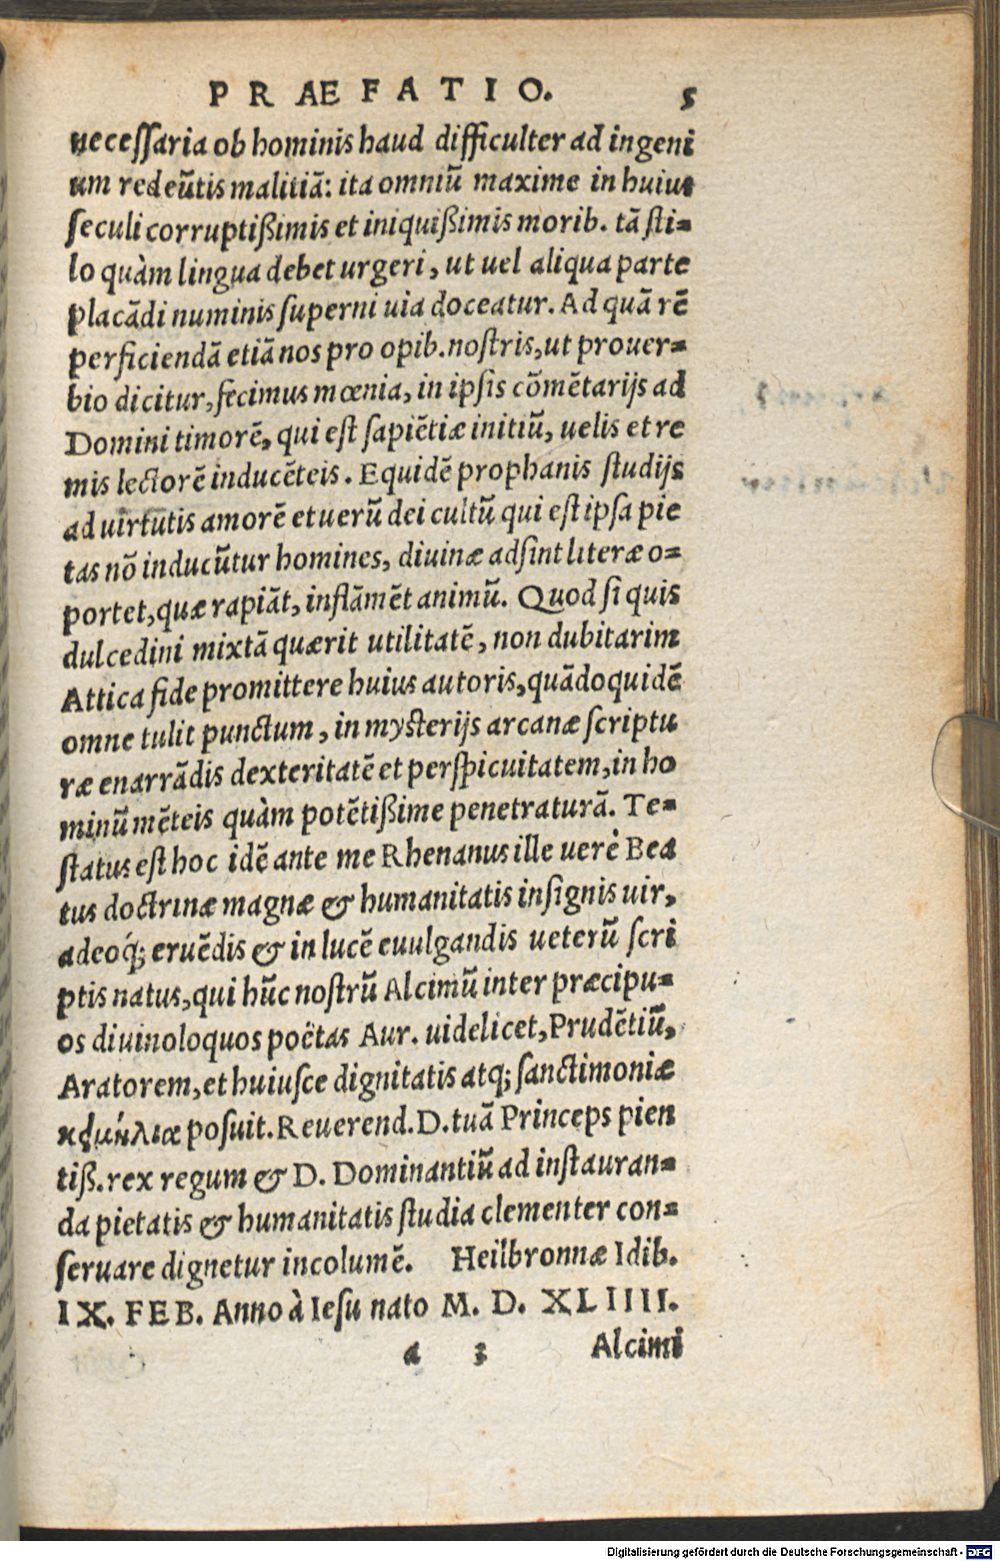 PRÆFATIO. 5
necessaria ob hominis haud difficulter ad ingeni
um redeũtis malitiã: ita omniũ maxime in huius
seculi corruptißimis et iniquißimis morib. tã sti=
lo quàm lingua debet urgeri, ut uel aliqua parte
placãdi numinis superni uia doceatur. Ad quã rẽ
perficiendã etiã nos pro opib. nostris, ut prouer=
bio dicitur, fecimus mœnia, in ipsis cõmẽtarijs ad
Domini timorẽ, qui est sapiẽtiæ initiũ, uelis et re
mis lectorẽ inducẽteis. Equidẽ prophanis studijs
ad uirtutis amorẽ et uerũ dei cultũ qui est ipsa pie
tas nõ inducũtur homines, diuinæ adsint literæ o=
portet, quæ rapiãt, inflãmẽt animũ. Quod si quis
dulcedini mixtã quærit utilitatẽ, non dubitarim
Attica fide promittere huius autoris, quãdoquidẽ
omne tulit punctum, in mysterijs arcanæ scriptu
ræ enarrãdis dexteritatẽ et perspicuitatem, in ho
minũ mẽteis quàm potẽtißime penetraturã. Te=
status est hoc idẽ ante me Rhenanus ille uerè Bea
tus doctrinæ magnæ & humanitatis insignis uir,
adeoq́; eruẽdis & in lucẽ euulgandis ueterũ scri
ptis natus, qui hũc nostrũ Alcimũ inter præcipu=
os diuinoloquos poëtas Aur. uidelicet, Prudẽtiũ,
Aratorem, et huiusce dignitatis atq; sanctimoniæ
posuit. Reuerend. D. tuã Princeps pien
tiß. rex regum & D. Dominantiũ ad instauran=
da pietatis & humanitatis studia clementer con=
seruare dignetur incolumẽ. Heilbronnæ Idib.
IX. FEB. Anno à Iesu nato M. D. XLIIII.
a 3 Alcimi
Digitalisierung gefördert durch die Deutsche Forschungsgemeinschaft - DFG